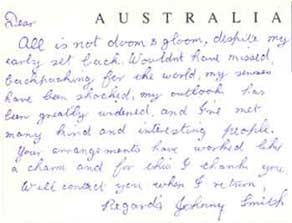 AUSTRALIA
Dear
All is not doom & gloom, despite my
early set back. Wouldn't have missed
backpacking for the world, my senses
have been shocked, my outlook has
been greatly widened, and I've met
many kind and interesting people.
Your arrangements have worked like
a charm and for this I thank you.
Will contact you when I return,
Regards Johnny Smith